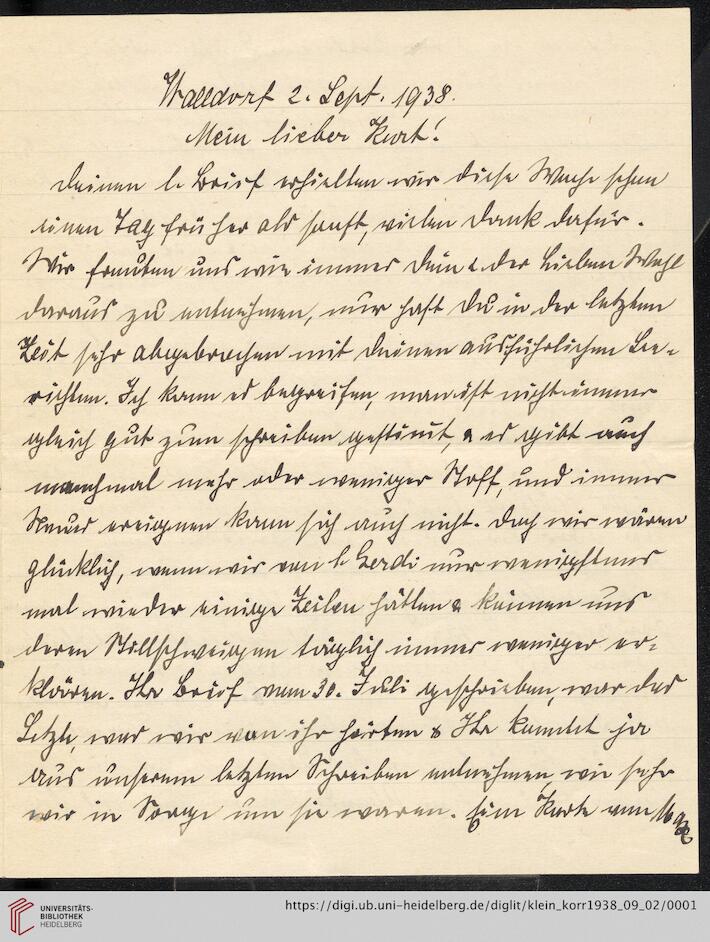 Walldorf 2. Sept. 1938.
Mein lieber Kurt!
Deinen l. Brief erhielten wir diese Woche schon
einen Tag früher als sonst, vielen Dank dafür.
Wir freuten uns wie immer Dein & der Lieben Wohl
daraus zu entnehmen, nur hast Du in der letzten
Zeit sehr abgebrochen mit Deinen ausführlichen Be-
richten. Ich kann es begreifen, man ist nicht immer
gleich gut zum schreiben gestimt, & es gibt auch
manchmal mehr oder weniger Stoff, und immer
Neues ereignen kann sich auch nicht. Doch wir wären
glücklich, wenn wir von l. Gerdi nur wenigstens
mal wieder einige Zeilen hätten & können uns
deren Stillschweigen täglich immer weniger er-
klären. Ihr Brief vom 30. Juli geschrieben, war das
Letzte, was wir von ihr hörten & Ihr konntet ja
aus unserem letzten Schreiben entnehmen, wie sehr
wir in Sorge um sie waren. Eine Karte von
UNIVERSITÄTS-
BIBLIOTHEK
HEIDELBERG
https://digi.ub.uni-heidelberg.de/diglit/klein_korr1938_09_02/0001